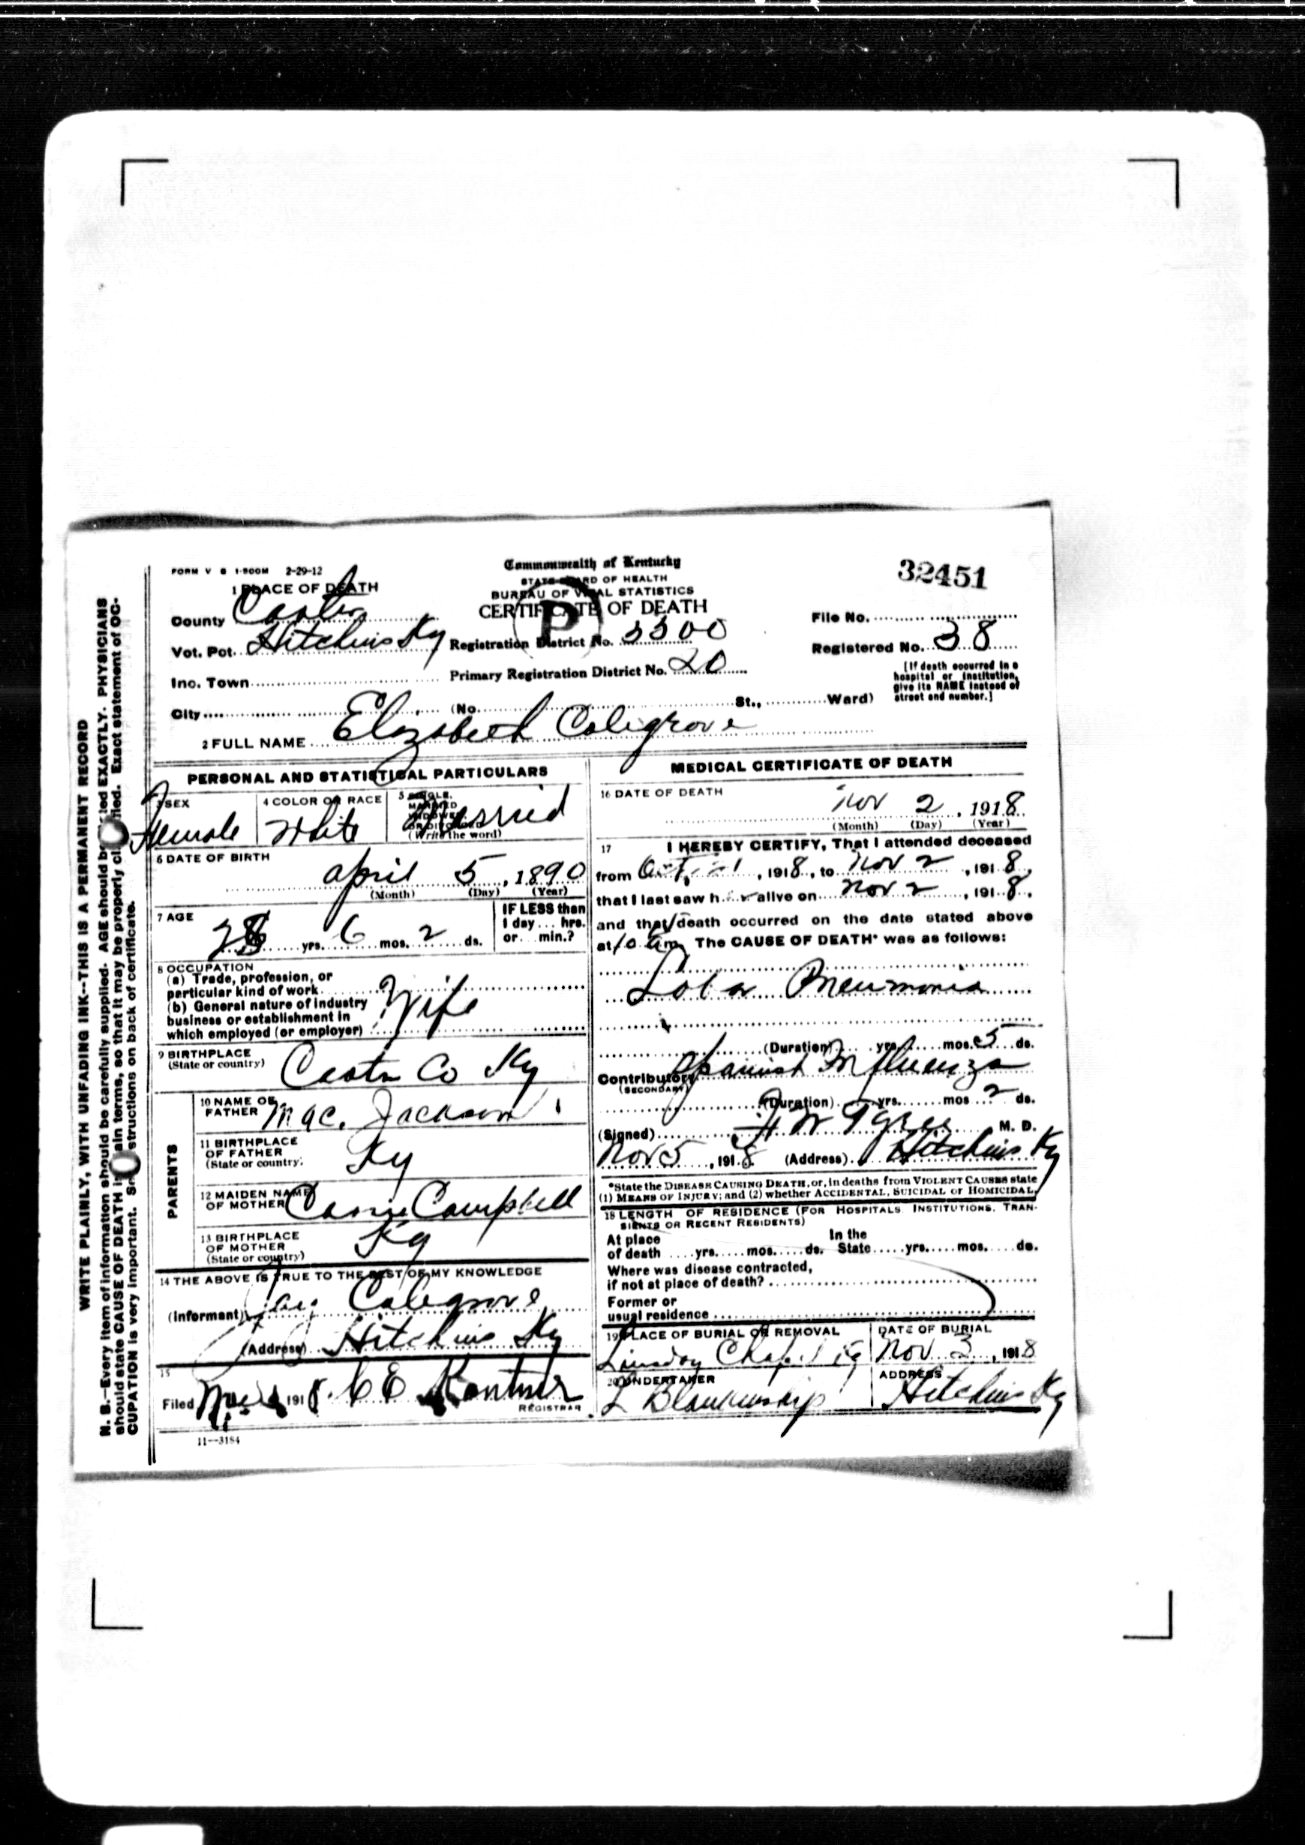 FORM V S 1-500M 2-29-12
Commonwealth of Kentucky
STATE BOARD OF HEALTH
BUREAU OF VITAL STATISTICS
CERTIFICATE OF DEATH
P
32451
1 PLACE OF DEATH
County Carter
Vot. Pct. Hitchins Ky
Inc. Town
City
Registration District No. 3300
Primary Registration District No. 20
(No. St., Ward)
File No.
Registered No. 38
[If death occurred in a
hospital or institution,
give its NAME instead of
street and number.]
2 FULL NAME Elizabeth Colegrove
PERSONAL AND STATISTICAL PARTICULARS
3 SEX
Female
4 COLOR OR RACE
White
5 SINGLE,
MARRIED
WIDOWED
OR DIVORCED
(Write the word)
Married
6 DATE OF BIRTH
April 5, 1890
(Month) (Day) (Year)
7 AGE
28 yrs. 6 mos. 2 ds.
IF LESS than
1 day ... hrs.
or ... min.?
8 OCCUPATION
(a) Trade, profession, or
particular kind of work
(b) General nature of industry
business or establishment in
which employed (or employer)
Wife
9 BIRTHPLACE
(State or country)
Carter Co Ky
PARENTS
10 NAME OF
FATHER Mac. Jackson
11 BIRTHPLACE
OF FATHER
(State or country.
Ky
12 MAIDEN NAME
OF MOTHER Campbell
13 BIRTHPLACE
OF MOTHER
(State or country)
Ky
14 THE ABOVE IS TRUE TO THE BEST OF MY KNOWLEDGE
(Informant) Colegrove
(Address) Hitchins Ky
15
Filed 1918 C E
REGISTRAR
11--3184
MEDICAL CERTIFICATE OF DEATH
16 DATE OF DEATH
Nov 2, 1918
(Month) (Day) (Year)
17 I HEREBY CERTIFY, That I attended deceased
from Oct, 1, 1918, to Nov 2, 1918,
that I last saw h alive on Nov 2, 1918,
and that death occurred on the date stated above
at 10 am The CAUSE OF DEATH* was as follows:
Loba Pneumonia
(Duration) yrs. mos. 5 ds.
Contributory Spanish Influenza
(SECONDARY)
(Duration) yrs. mos 2 ds.
(Signed) M. D.
Nov 5, 1918 (Address) Hitchins Ky
*State the DISEASE CAUSING DEATH, or, in deaths from VIOLENT CAUSES state
(1) MEANS OF INJURY; and (2) whether ACCIDENTAL, SUICIDAL or HOMICIDAL.
18 LENGTH OF RESIDENCE (FOR HOSPITALS. INSTITUTIONS. TRAN-
SIENTS OR RECENT RESIDENTS)
At place In the
of death yrs. mos. ds. State yrs. mos. ds.
Where was disease contracted,
if not at place of death?
Former or
usual residence
19 PLACE OF BURIAL OR REMOVAL
DATE OF BURIAL
Nov 3, 1918
20 UNDERTAKER
L Blankenship
ADDRESS
Hitchins Ky
WRITE PLAINLY, WITH UNFADING INK--THIS IS A PERMANENT RECORD
N. B.--Every item of information should be carefully supplied. AGE should be stated EXACTLY. PHYSICIANS
should state CAUSE OF DEATH in plain terms, so that it may be properly classified. Exact statement of OC-
CUPATION is very important. See instructions on back of certificate.